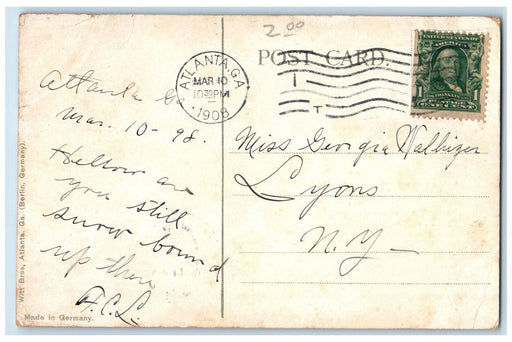 2.00
POST CARD.
ATLANTA, GA.
MAR 10
10 30 PM
1908
1
T
1
Atlanta Ga
Mar. 10-98.
Hellow are
you still
snow bound
up there
F.C.L.
Miss Georgia Walhizer
Lyons
N.Y.
Witt Bros, Atlanta. Ga. (Berlin, Germany).
Made in Germany.